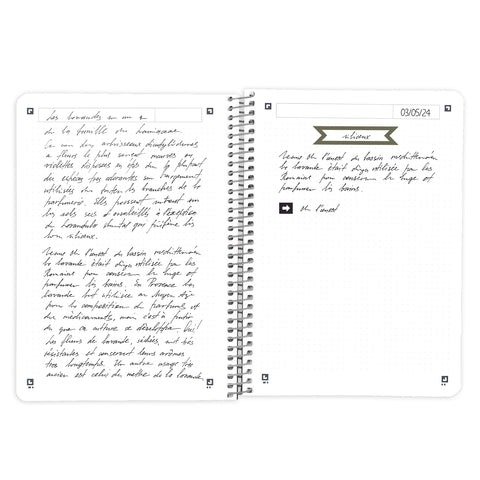 Les lavandes
de la famille du
le nom d'arbrisseaux dicotylédones
à fleurs le plus souvent mauves ou
violettes disposées en épis du la plupart
des espèces très odorantes sur largement
utilisées dans toutes les branches de la
parfumerie. Elles poussent surtout sur
les sols secs et ensoleillés à l'exception
de lavandula qui préfère les
sols siliceux.
Venue de l'ouest du bassin méditerranéen
la lavande était déjà utilisée par les
Romains pour conserver le linge et
parfumer les bains. En Provence la
lavande est utilisée au Moyen
pour la composition de parfums et
des médicaments, mais c'est à partir
du que sa culture se développe.
Les fleurs de lavande, séchées, sont très
résistantes et conservent leurs arômes
très longtemps. Un autre usage très
ancien est celui de mettre de la lavande
03/05/24
siliceux
Venue de l'ouest du bassin méditerranéen
la lavande était déjà utilisée par les
Romains pour conserver le linge et
parfumer les bains.
de l'ouest